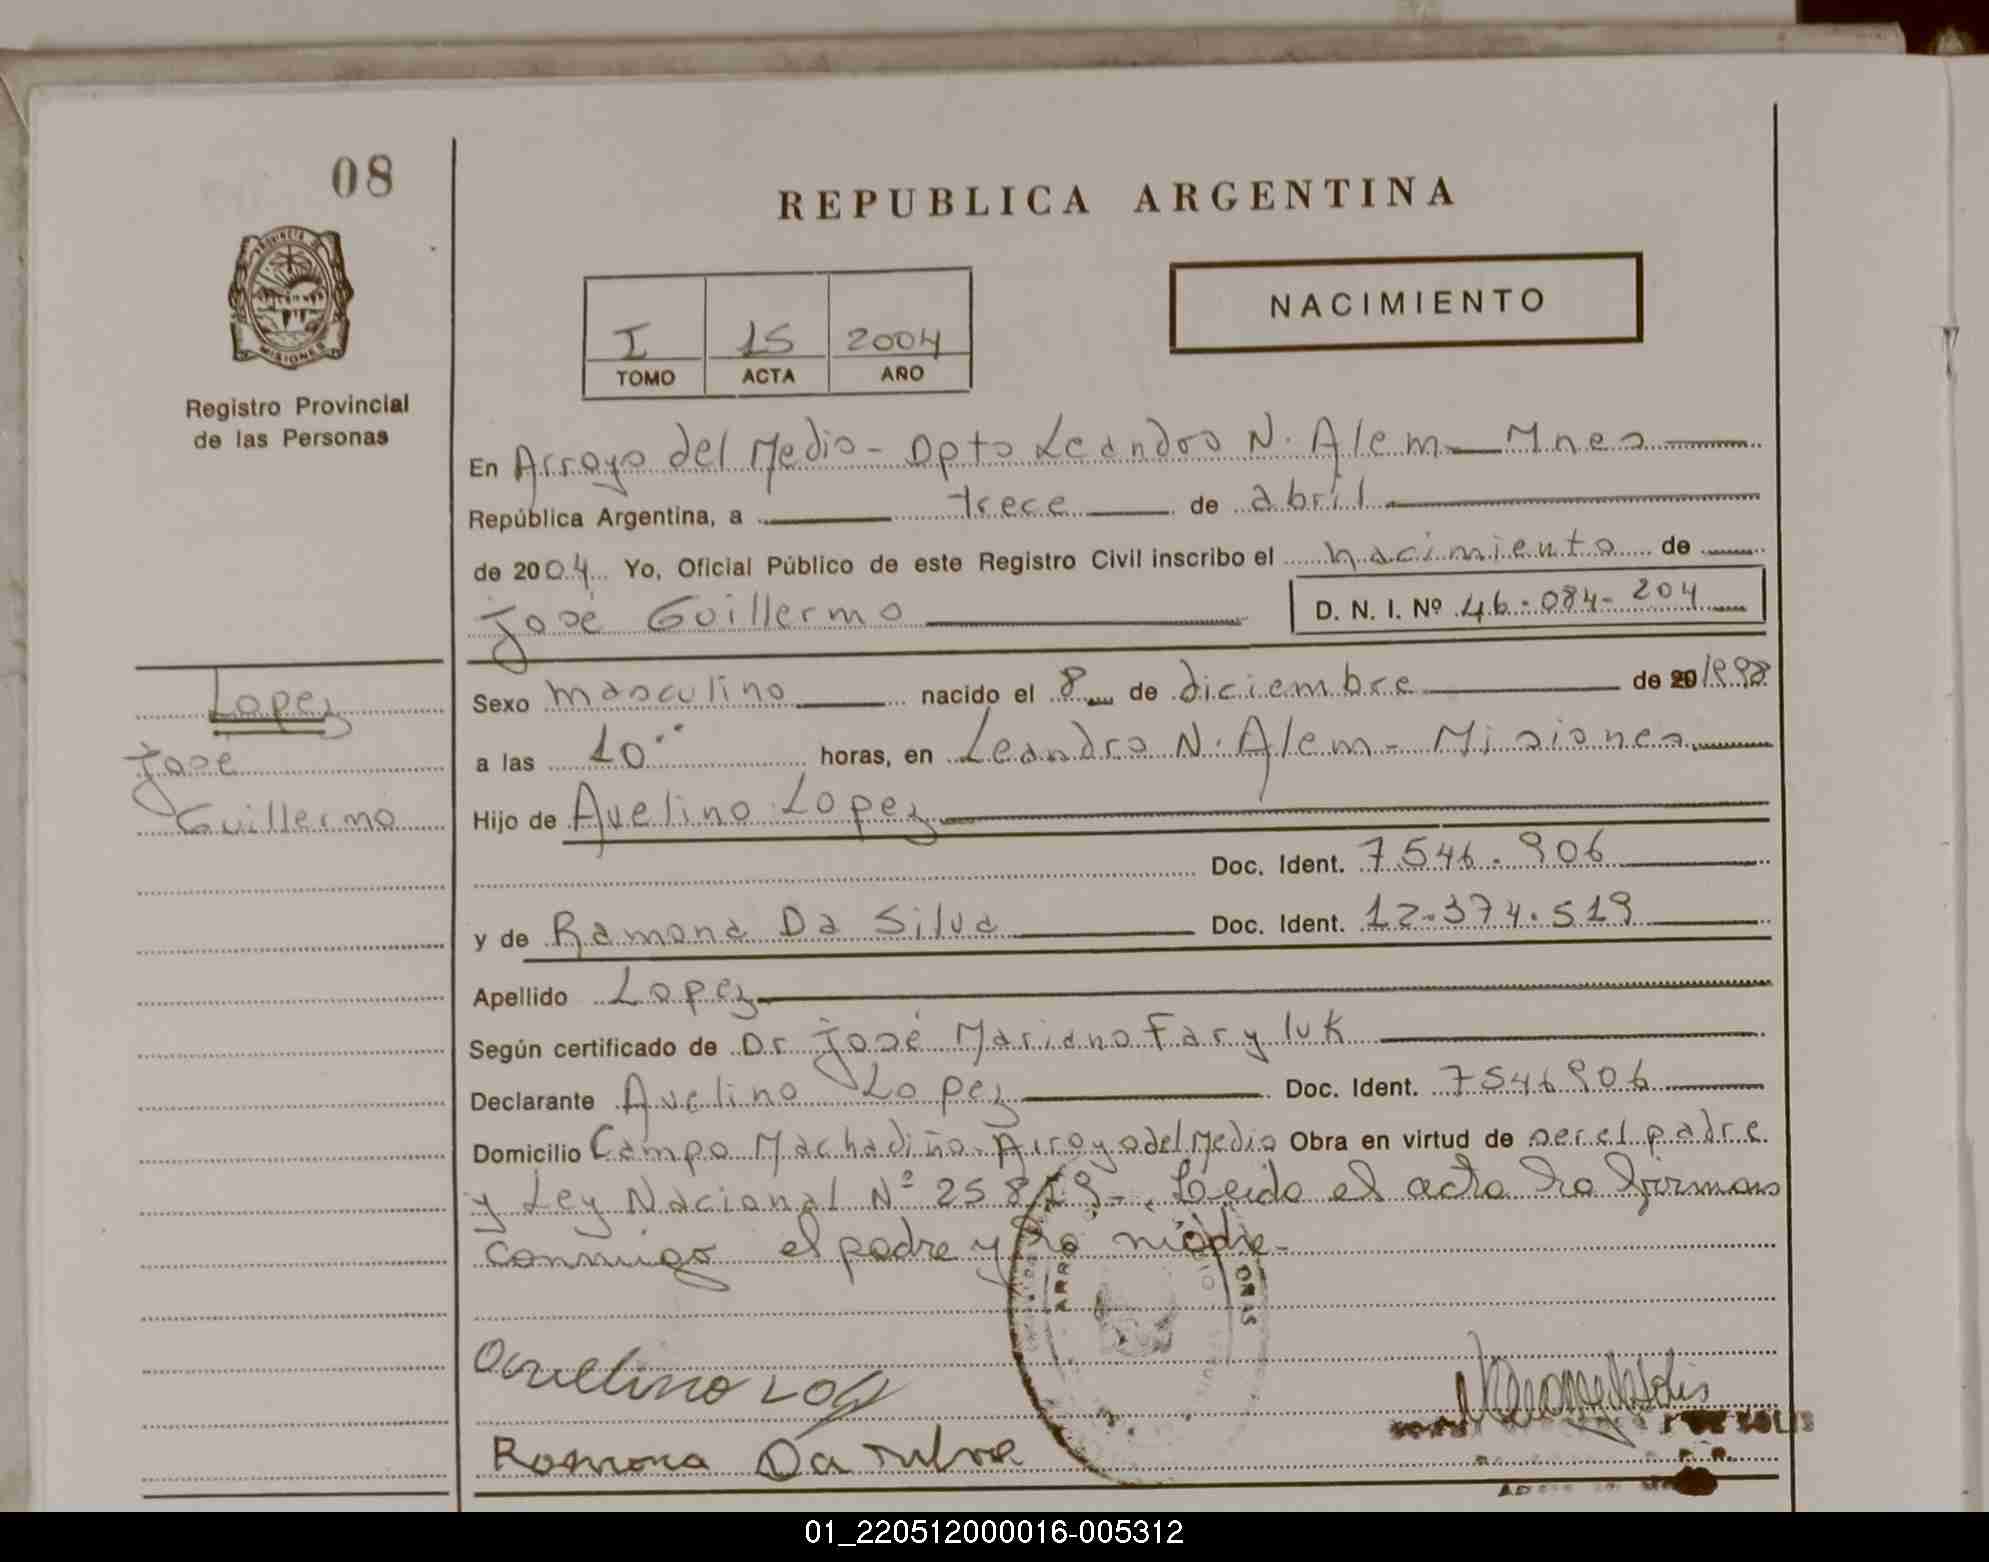 08
REPUBLICA ARGENTINA
PROVINCIA DE
MISIONES
Registro Provincial
de las Personas
I 15 2004
TOMO ACTA AÑO
NACIMIENTO
En Arroyo del Medio - Dpto Leandro N. Alem - Mnes
República Argentina, a trece de abril
de 2004 Yo, Oficial Público de este Registro Civil inscribo el nacimiento de
José Guillermo D. N. I. Nº 46-084-204
Lopez
José
Guillermo
Sexo masculino nacido el 8 de diciembre de 20 1998
a las 10 horas, en Leandro N. Alem - Misiones
Hijo de Avelino Lopez
Doc. Ident. 7546.906
y de Ramona Da Silva Doc. Ident. 12-374.519
Apellido Lopez
Según certificado de Dr José Mariano Faryluk
Declarante Avelino Lopez Doc. Ident. 7546906
Domicilio Campo Machadiño - Arroyo del Medio Obra en virtud de ser el padre
y Ley Nacional Nº 25819-. Leida el acta la firman
conmigo el padre y la madre-
Avelino Lopez
Ramona Da Silva
SOLIS
01_220512000016-005312